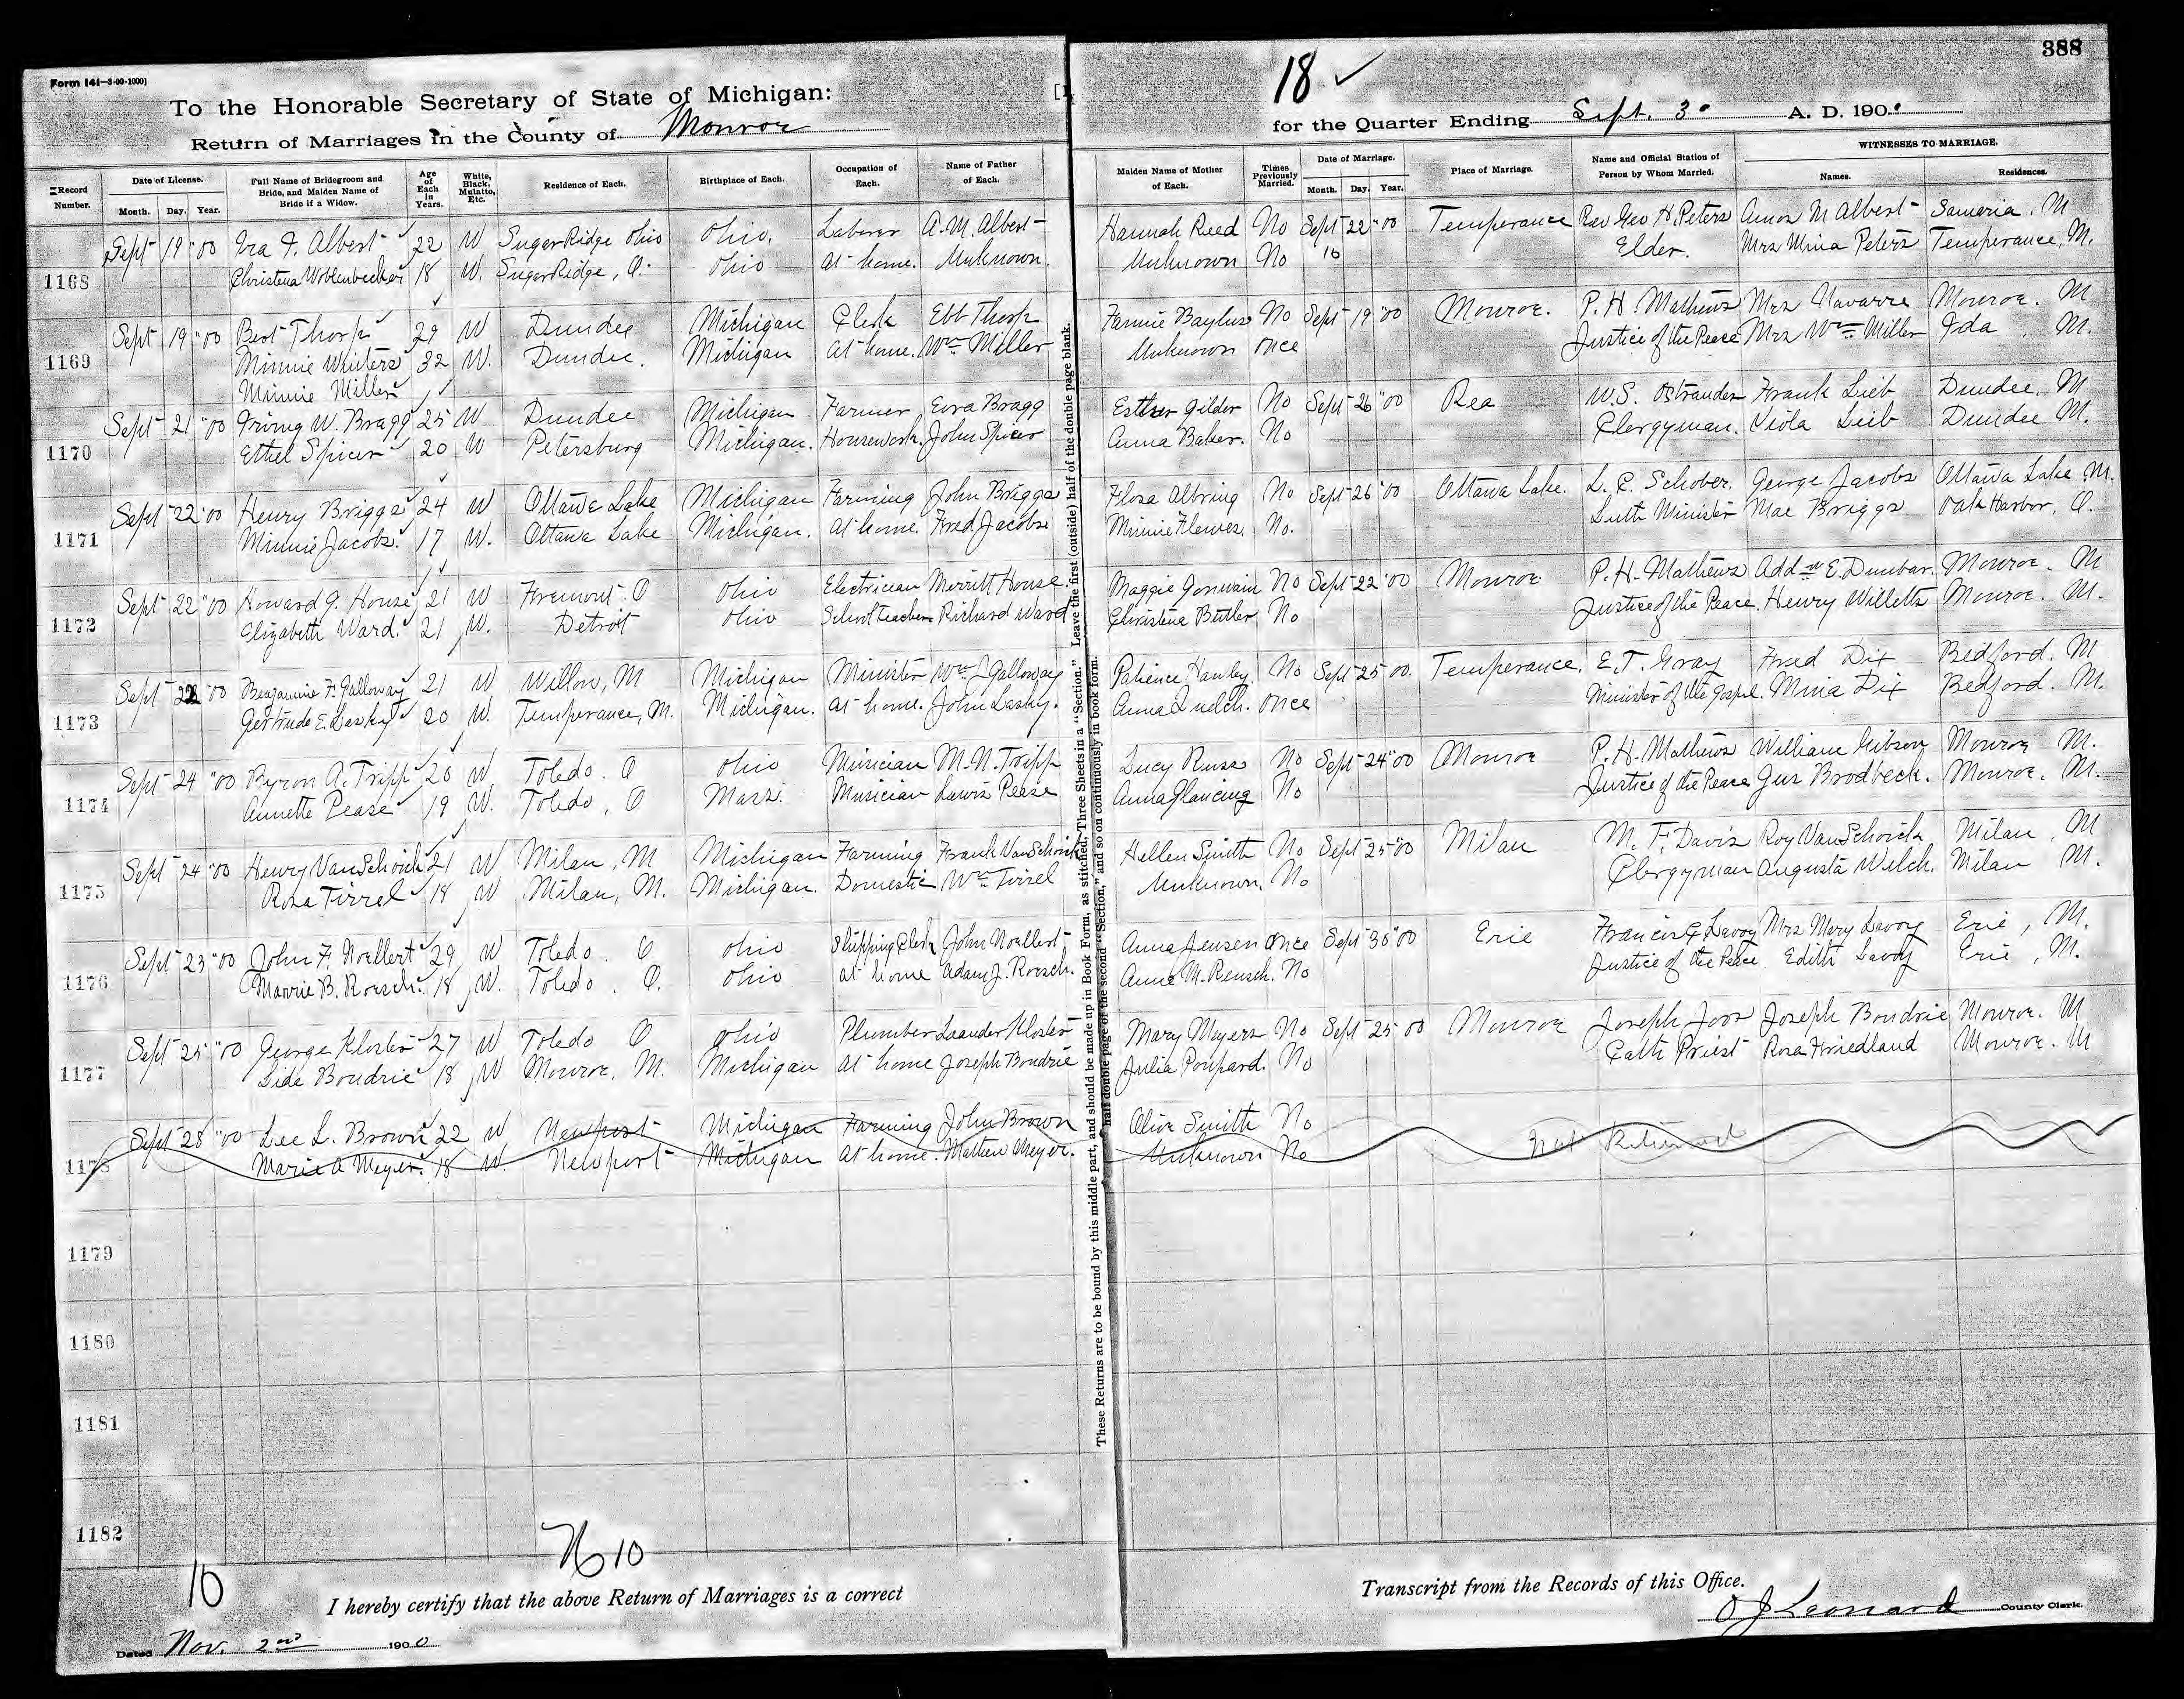 388
Form 141—3-00-1000]
18 ✓
To the Honorable Secretary of State of Michigan:
Return of Marriages in the County of Monroe
for the Quarter Ending Sept. 30 A. D. 1900
Record Number.
Date of License.
Month. Day. Year.
Full Name of Bridegroom and Bride, and Maiden Name of Bride if a Widow.
Age of Each in Years.
White, Black, Mulatto, Etc.
Residence of Each.
Birthplace of Each.
Occupation of Each.
Name of Father of Each.
Maiden Name of Mother of Each.
Times Previously Married.
Date of Marriage.
Month. Day. Year.
Place of Marriage.
Name and Official Station of Person by Whom Married.
WITNESSES TO MARRIAGE.
Names. Residences.
Sept 19 "00 Ira F. Albert 22 W Sugar Ridge Ohio Ohio. Laborer A. M. Albert Hannah Reed No Sept 22 "00 Temperance Rev Geo H. Peters Amos M Albert Samaria. M
1168 Christena 18 W. Sugar Ridge, O. Ohio at home. Unknown. Unknown No Elder. Mrs Mina Peters Temperance, M.
Sept 19 "00 Bert Thorp 29 W Dundee Michigan Clerk Ebb Thorp Fannie Baylus No Sept 19 "00 Monroe. P. H. Mathews Mrs Navarre Monroe. M
1169 Minnie Winters 32 W. Dundee. Michigan at home. Wm Miller Unknown once Justice of the Peace Mrs Wm Miller Ida M.
Minnie Miller
Sept 21 "00 Irving W. Bragg 25 W Dundee Michigan Farmer Ezra Bragg Esther Gilder No Sept 26 "00 Rea W. S. Ostrander Frank Lieb Dundee, M
1170 Ethel Spicer 20 W Petersburg Michigan. Housework. John Spicer Anna Baker. No Clergyman. Viola Lieb Dundee M.
Sept 22 "00 Henry Briggs 24 W Ottawa Lake Michigan Farming John Briggs Flora Albring No Sept 26 "00 Ottawa Lake. L. C. Schober. George Jacobs Ottawa Lake M.
1171 Minnie Jacobs. 17 W. Ottawa Lake Michigan. at home. Fred Jacobs Minnie Flowers. No. Luth Minister Mae Briggs Oak Harbor, O.
Sept 22 "00 Howard J. House 21 W Fremont. O Ohio Electrician Merritt House. Maggie Gorwain No Sept 22 "00 Monroe P. H. Mathews E. Dunbar. Monroe. M
1172 Elizabeth Ward. 21 W. Detroit Ohio School teacher Richard Ward Christena Butler No Justice of the Peace. Henry Willetts Monroe. M.
Sept 22 "00 Benjamine F. Galloway 21 W Willow, M Michigan Minister Wm L Galloway Patience Hanley No Sept 25 00. Temperance. E. T. Gray Fred Dix Bedford. M
1173 Gertrude E. Lasky 20 W. Temperance, M. Michigan. at home. John Lasky. Anna once Minister of the Gospel. Mina Dix Bedford. M.
Sept 24 "00 Byron A. Tripp 20 W Toledo. O Ohio Musician M. N. Tripp Lucy Ruse No Sept 24 "00 Monroe P. H. Mathews William Gibson Monroe M.
1174 Annette Pease 19 W. Toledo, O Mass. Musician Lewis Pease Anna Glancing No Justice of the Peace Gus Brodbeck. Monroe. M.
Sept 24 "00 Henry VanSchoick 21 W Milan, M Michigan Farming Frank VanSchoick Hellen Smith No Sept 25 "00 Milan M. F. Davis Roy VanSchoick Milan, M
1175 Rosa Tirrel 18 W Milan, M. Michigan. Domestic Wm Tirrel Unknown. No Clergyman Augusta Welch. Milan M.
Sept 23 "00 John F. Noellert 29 W Toledo. O Ohio Shipping Clerk John Noellert Anna Jensen once Sept 30 "00 Erie Francis G Lavoy Mrs Mary Lavoy Erie, M.
1176 B. Roesch. 18 W. Toledo. O. Ohio at home Adam J. Roesch. Anna M. Rensch. No Justice of the Peace Edith Lavoy Erie, M.
Sept 25 "00 George Kloster 27 W Toledo O Ohio Plumber Leander Kloster Mary Meyers No Sept 25 00 Monroe Joseph Joos Joseph Boudrie Monroe. M
1177 Lide Boudrie 18 W Monroe, M. Michigan at home Joseph Boudrie Julia Poupard. No Cath Priest Rosa Friedland Monroe. M
Sept 28 "00 Lee L. Brown 22 W Newport Michigan Farming John Brown Olive Smith No
1178 Marie A Meyer. 18 W. Newport Michigan at home. Mathew Meyer. Unknown No Not Returned
1179
1180
1181
1182
These Returns are to be bound by this middle part, and should be made up in Book Form, as stitched, Three Sheets in a "Section." Leave the first (outside) half of the double page blank.
half double page of the second "Section," and so on continuously in book form.
10
10
I hereby certify that the above Return of Marriages is a correct Transcript from the Records of this Office.
Dated Nov. 2nd 1900
O J Leonard County Clerk.